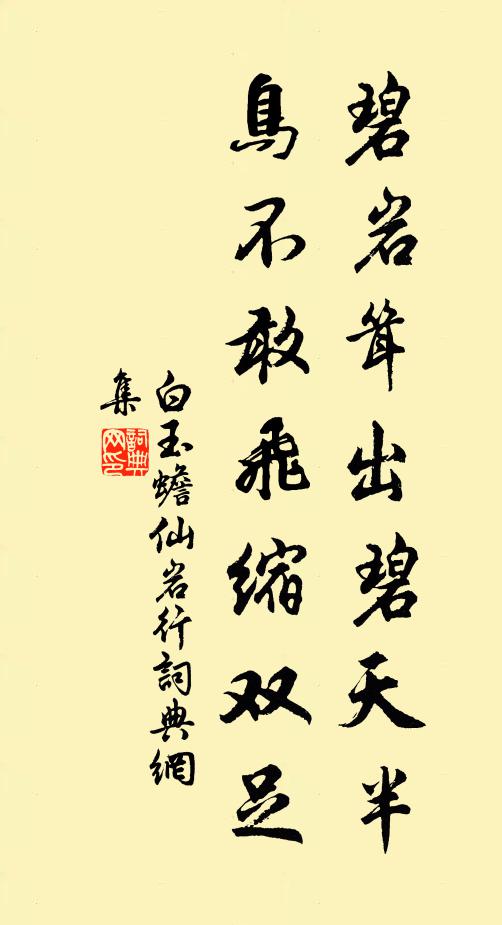 碧岩耸出碧天半
鳥不敢飛缩双足
白玉蟾仙岩行詞典網
集
詞典网印